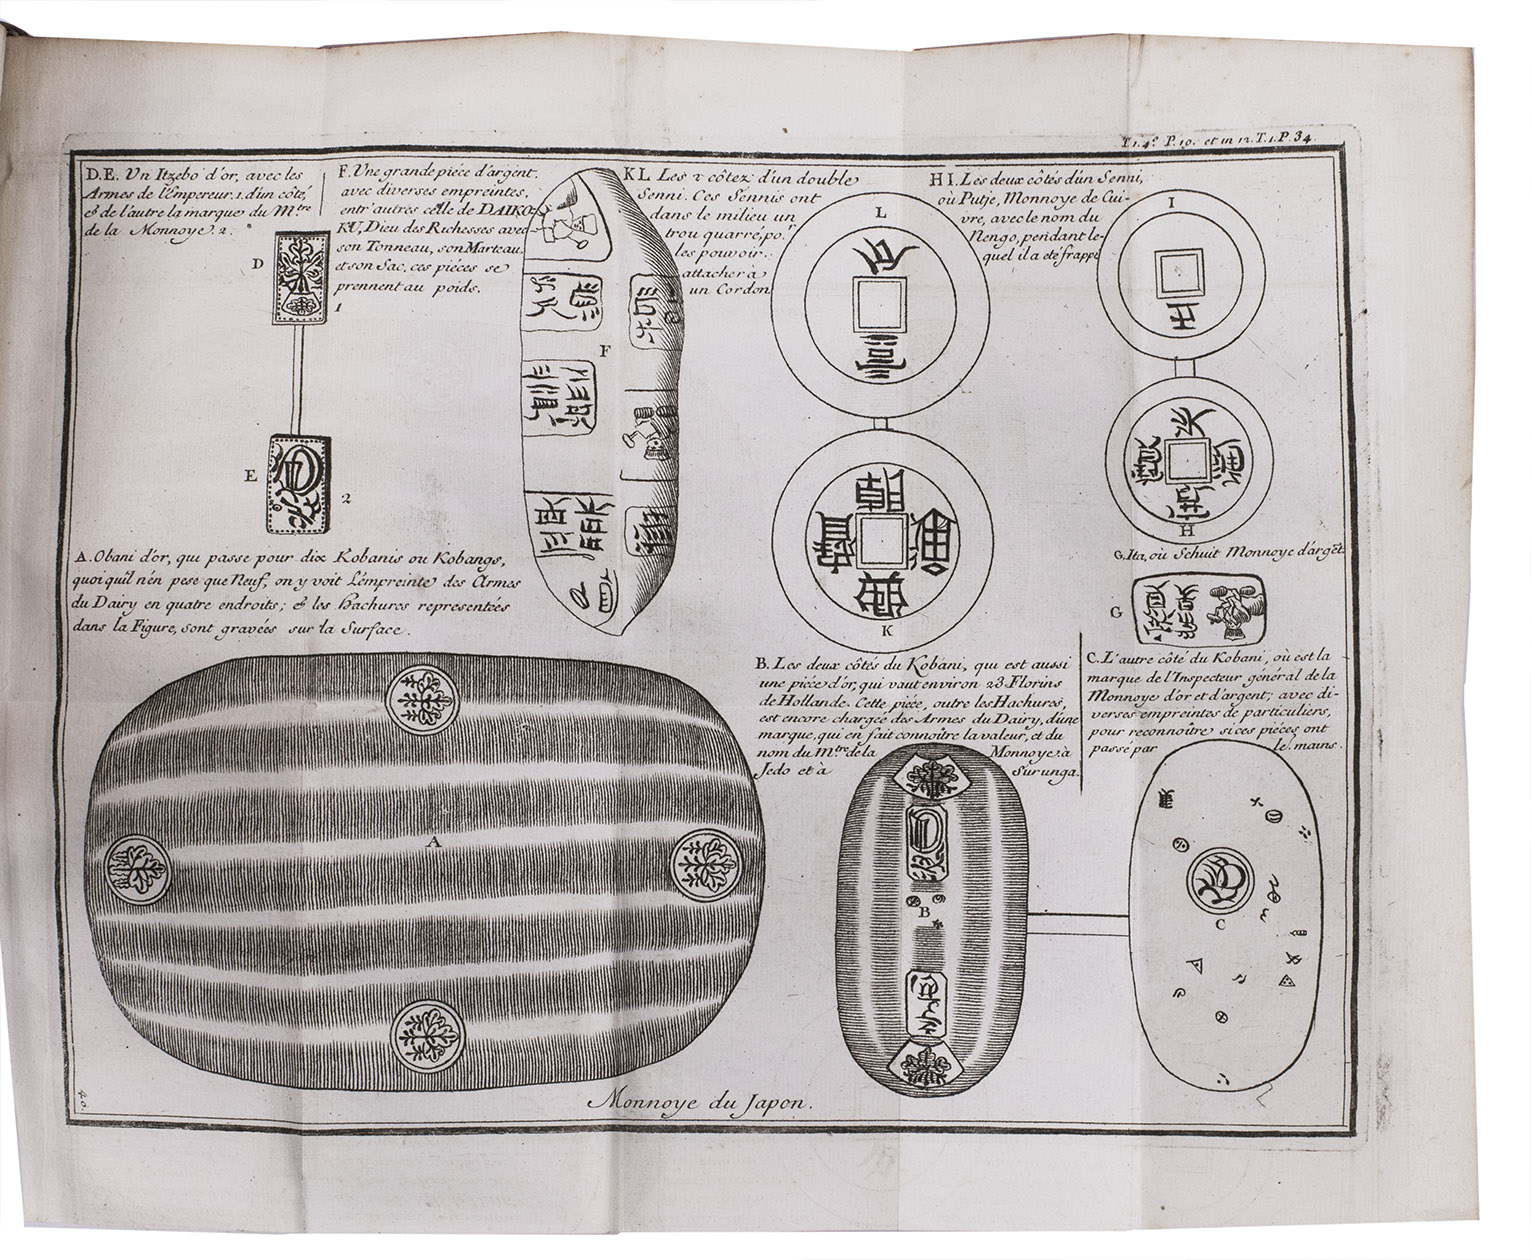 T.1.4.º P.19. et in 12.T.1.P.34
D.E. Un Itzebo d'or, avec les
Armes de l'Empereur.1.d'un côté,
& de l'autre la marque du M.tre
de la Monnoye.2.
D
1
E
2
F. Une grande piéce d'argent,
avec diverses empreintes,
entr'autres celle de DAIKO-
KU, Dieu des Richesses avec
son Tonneau, son Marteau,
et son Sac, ces piéces se
prennent au poids.
F
KL Les 2 côtez d'un double
Senni. Ces Sennis ont
dans le milieu un
trou quarré, po.r
les pouvoir
attacher à
un Cordon
L
K
HI. Les deux côtés d'un Senni,
où Putje, Monnoye de Cui-
vre, avec le nom du
Nengo, pendant le-
quel il a eté frappé
I
H
G. Ita, où Schuit Monnoye d'argẽt
G
A. Obani d'or, qui passe pour dix Kobanis ou Kobangs,
quoi qu'il n'en pese que Neuf, on y voit l'émpreinte des Armes
du Dairy en quatre endroits; & les Hachures representées
dans la Figure, sont gravées sur la Surface.
A
B. Les deux côtés du Kobani, qui est aussi
une piéce d'or, qui vaut environ 23 Florins
de Hollande. Cette piéce, outre les Hachures,
est encore chargée des Armes du Dairy, d'une
marque, qui en fait connoître la valeur, et du
nom du M.tre de la Monnoye à
Jedo et à Surunga.
B
C. L'autre côté du Kobani, où est la
marque de l'Inspecteur général de la
Monnoye d'or et d'argent; avec di-
verses empreintes de particuliers,
pour reconnoître si ces piéces ont
passé par les mains.
C
40.
Monnoye du Japon.